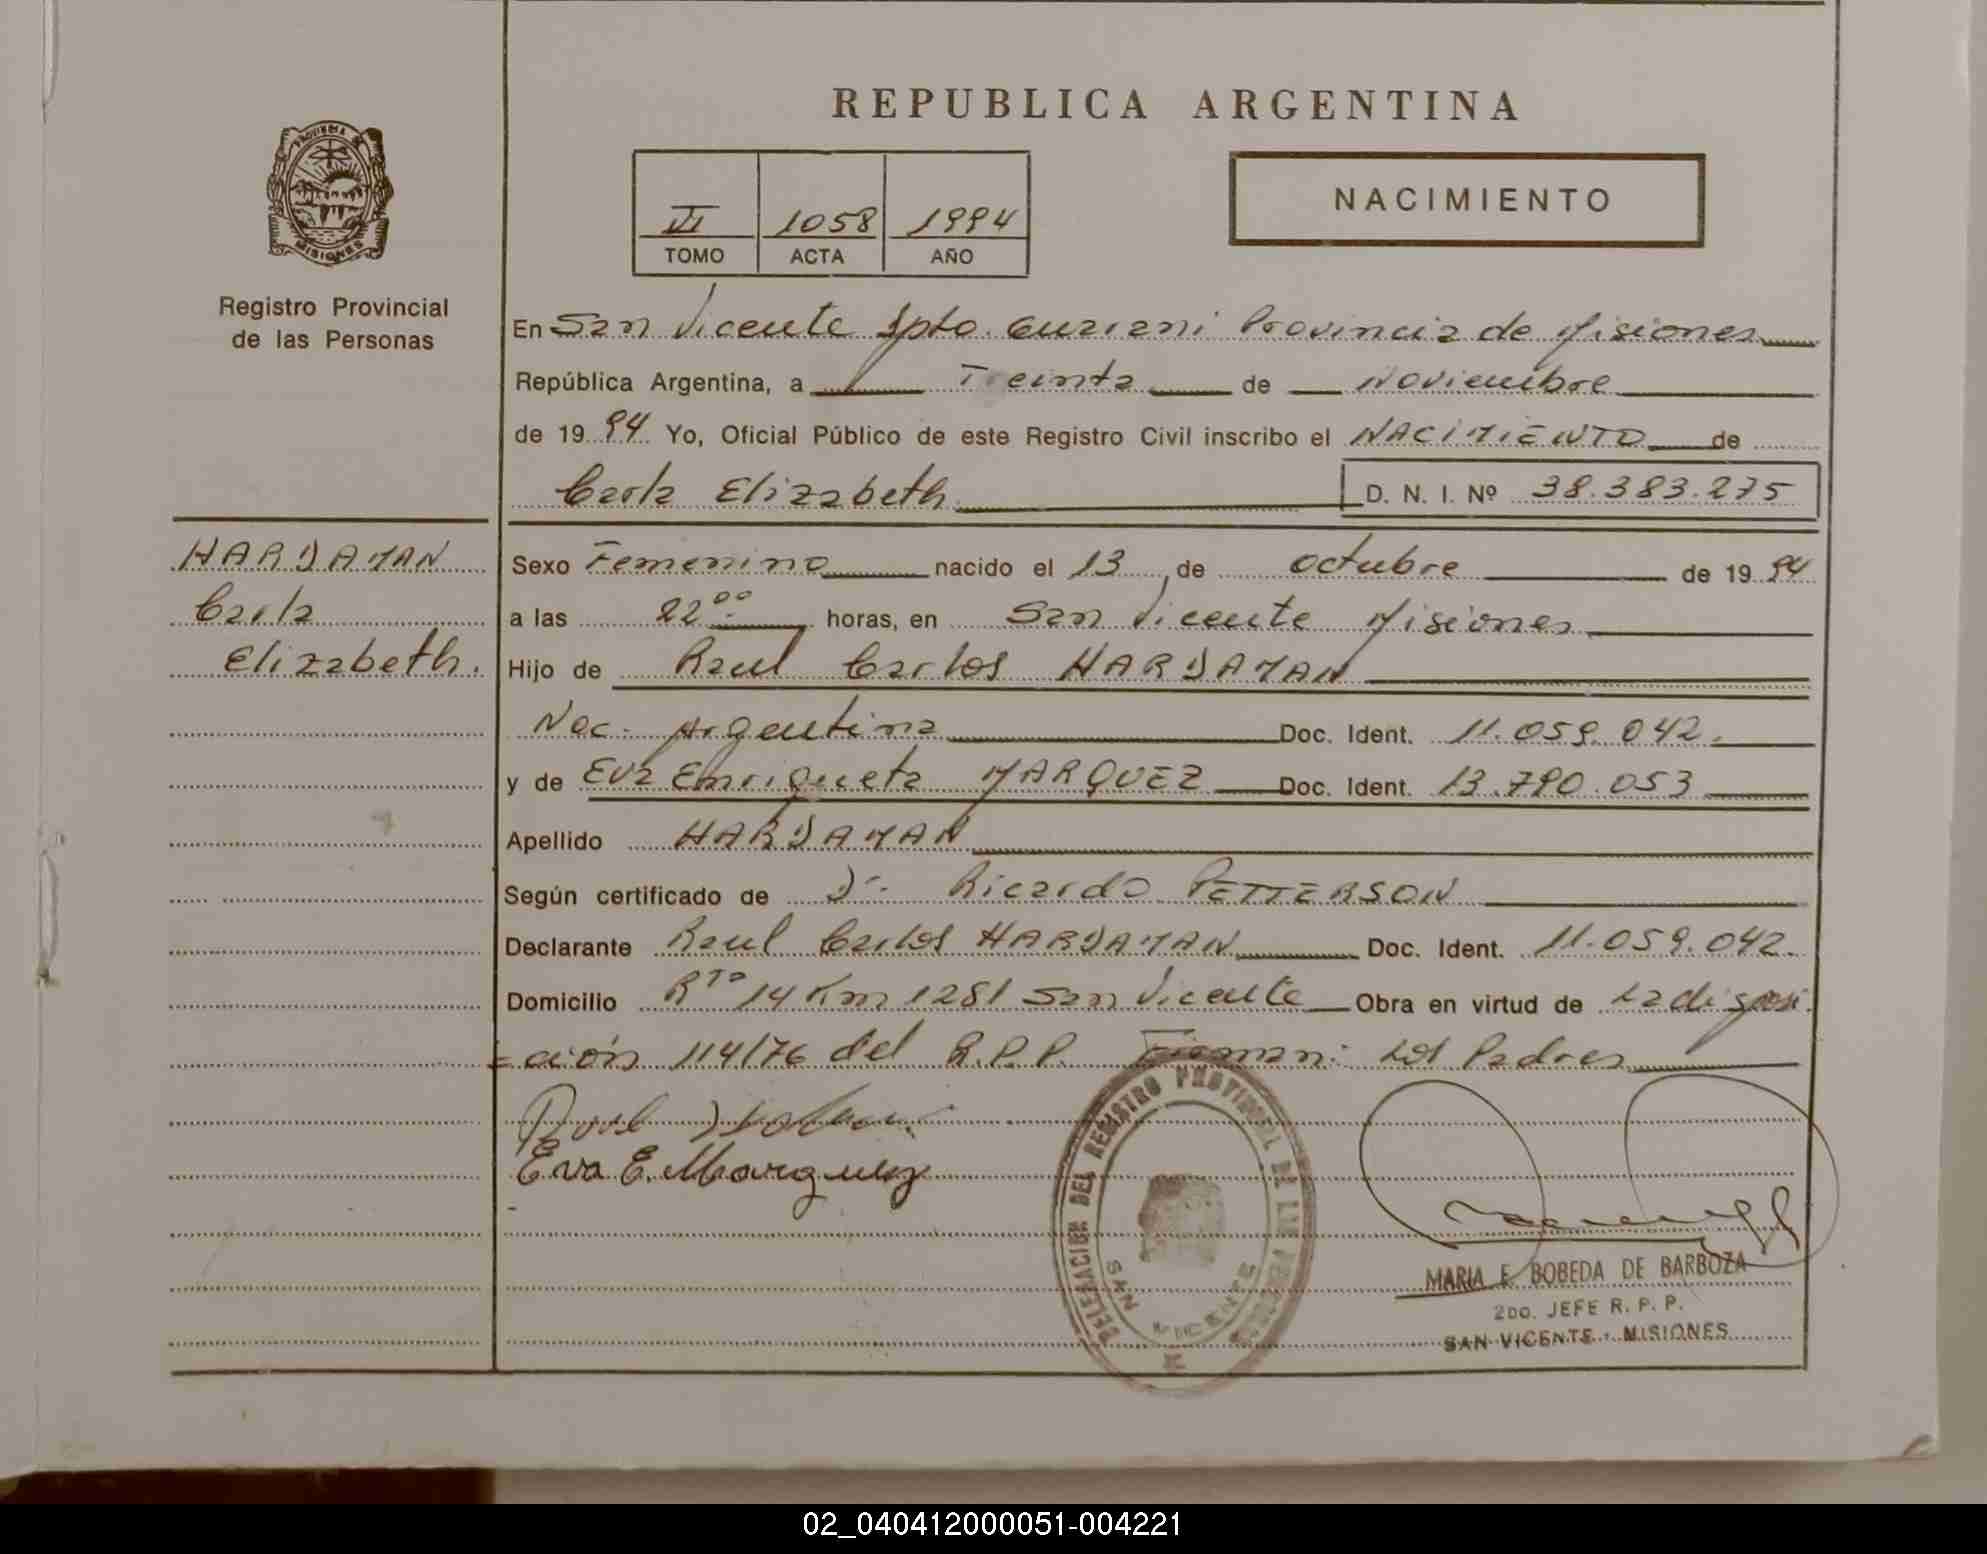 REPUBLICA ARGENTINA
PROVINCIA DE
MISIONES
Registro Provincial
de las Personas
VI 1058 1994
TOMO ACTA AÑO
NACIMIENTO
En San Vicente Dpto. Guarani Provincia de Misiones
República Argentina, a Treinta de Noviembre
de 19 94 Yo, Oficial Público de este Registro Civil inscribo el NACIMIENTO de
Carla Elizabeth D. N. I. Nº 38.383.275
HARDAMAN
Carla
Elizabeth.
Sexo Femenino nacido el 13 de octubre de 19 94
a las 22⁰⁰ horas, en San Vicente Misiones
Hijo de Raul Carlos HARDAMAN
Nac. Argentina Doc. Ident. 11.059.042.
y de Eva Enriqueta MARQUEZ Doc. Ident. 13.790.053
Apellido HARDAMAN
Según certificado de Dr. Ricardo PETTERSON
Declarante Raul Carlos HARDAMAN Doc. Ident. 11.059.042.
Domicilio Rta 14 Km 1281 San Vicente Obra en virtud de La disposi
=ción 114/76 del R.P.P. Firman: Los Padres
Eva E. Marquez
DELEGACION DEL REGISTRO PROVINCIAL DE LAS PERSONAS
SAN VICENTE
MARIA E. BOBEDA DE BARBOZA
2DO. JEFE R. P. P.
SAN VICENTE - MISIONES
02_040412000051-004221